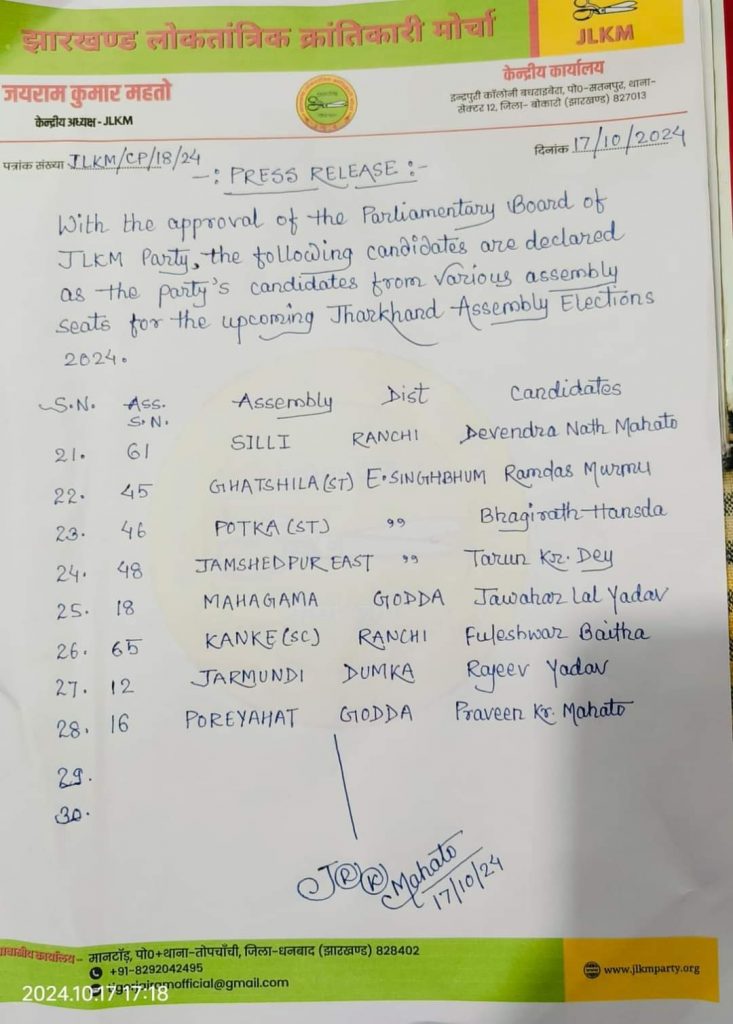 झारखण्ड लोकतांत्रिक क्रांतिकारी मोर्चा
JLKM
जयराम कुमार महतो
केन्द्रीय अध्यक्ष - JLKM
केन्द्रीय कार्यालय
इन्द्रपुरी कॉलोनी पो०-सतनपुर, थाना-
सेक्टर 12, जिला- बोकारो (झारखण्ड) 827013
पत्रांक संख्या JLKM/CP/18/24
दिनांक 17/10/2024
-: PRESS RELEASE :-
With the approval of the Parliamentary Board of
JLKM Party, the following candidates are declared
as the party's candidates from various assembly
seats for the upcoming Jharkhand Assembly Elections
2024.
S.N. Ass. S.N. Assembly Dist Candidates
21. 61 SILLI RANCHI Devendra Nath Mahato
22. 45 GHATSHILA (ST) E.SINGHBHUM Ramdas Murmu
23. 46 POTKA (ST) " Bhagirath Hansda
24. 48 JAMSHEDPUR EAST " Tarun Kr. Dey
25. 18 MAHAGAMA GODDA Jawahar Lal Yadav
26. 65 KANKE (SC) RANCHI Fuleshwar Baitha
27. 12 JARMUNDI DUMKA Rajeev Yadav
28. 16 POREYAHAT GODDA Praveen Kr. Mahato
29.
30.
JRK Mahato
17/10/24
कार्यालय - मानटाँड़, पो०+थाना-तोपचाँची, जिला-धनबाद (झारखण्ड) 828402
+91-8292042495
www.jlkmparty.org
2024.10.17 17:18